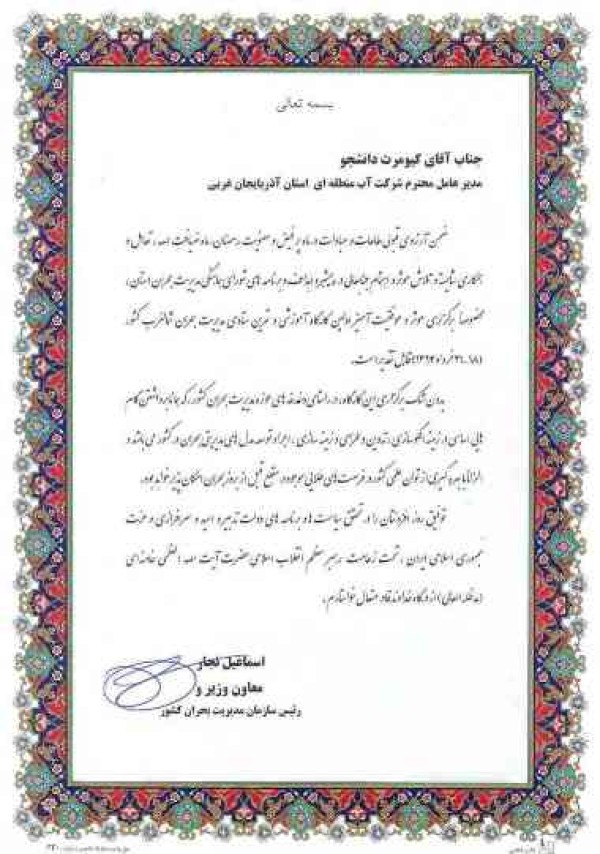 بسمه تعالی
جناب آقای کیومرث دانشجو
مدیر عامل محترم شرکت آب منطقه ای استان آذربایجان غربی
ضمن آرزوی قبولی طاعات و عبادات در ماه پر فیض و معنویت رمضان، ماه ضیافت اله، تعامل و
همکاری شایسته و تلاش موثر و اهتمام جنابعالی در پیشبرد اهداف و برنامه های شورای هماهنگی مدیریت بحران استان،
مخصوصاً برگزاری موثر و موفقیت آمیز اولین کارگاه آموزشی و تمرین ستادی مدیریت بحران شمالغرب کشور
قابل تقدیر است.
بدون شک برگزاری این کارگاه، در راستای دغدغه های حوزه مدیریت بحران کشور که جانا برداشتن گام
هایی اساسی در زمینه الگو سازی، تدوین و طراحی و زمینه سازی، اجرا و توسعه مدل های مدیریتی بحران در کشور می باشد و
الزاماً با بهره گیری از توان علمی کشور در فرصت های طلایی موجود در مقطع قبل از بروز بحران امکان پذیر خواهد بود.
توفیق روز افزونتان را در تحقق سیاست ها و برنامه های دولت تدبیر و امید و سرافرازی و عزت
جمهوری اسلامی ایران، تحت زعامت رهبر معظم انقلاب اسلامی حضرت آیت اله العظمی خامنه ای
(مدظله العالی) از درگاه خداوند قادر متعال خواستارم.
اسماعیل نجار
معاون وزیر و
رئیس سازمان مدیریت بحران کشور